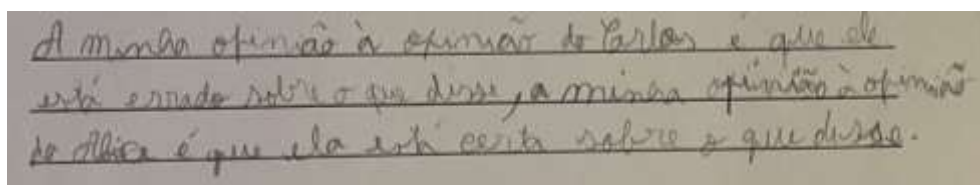 A minha opinião à opinião do Carlos é que ele
está errado sobre o que disse, a minha opinião à opinião
da Alice é que ela está certa sobre o que disse.